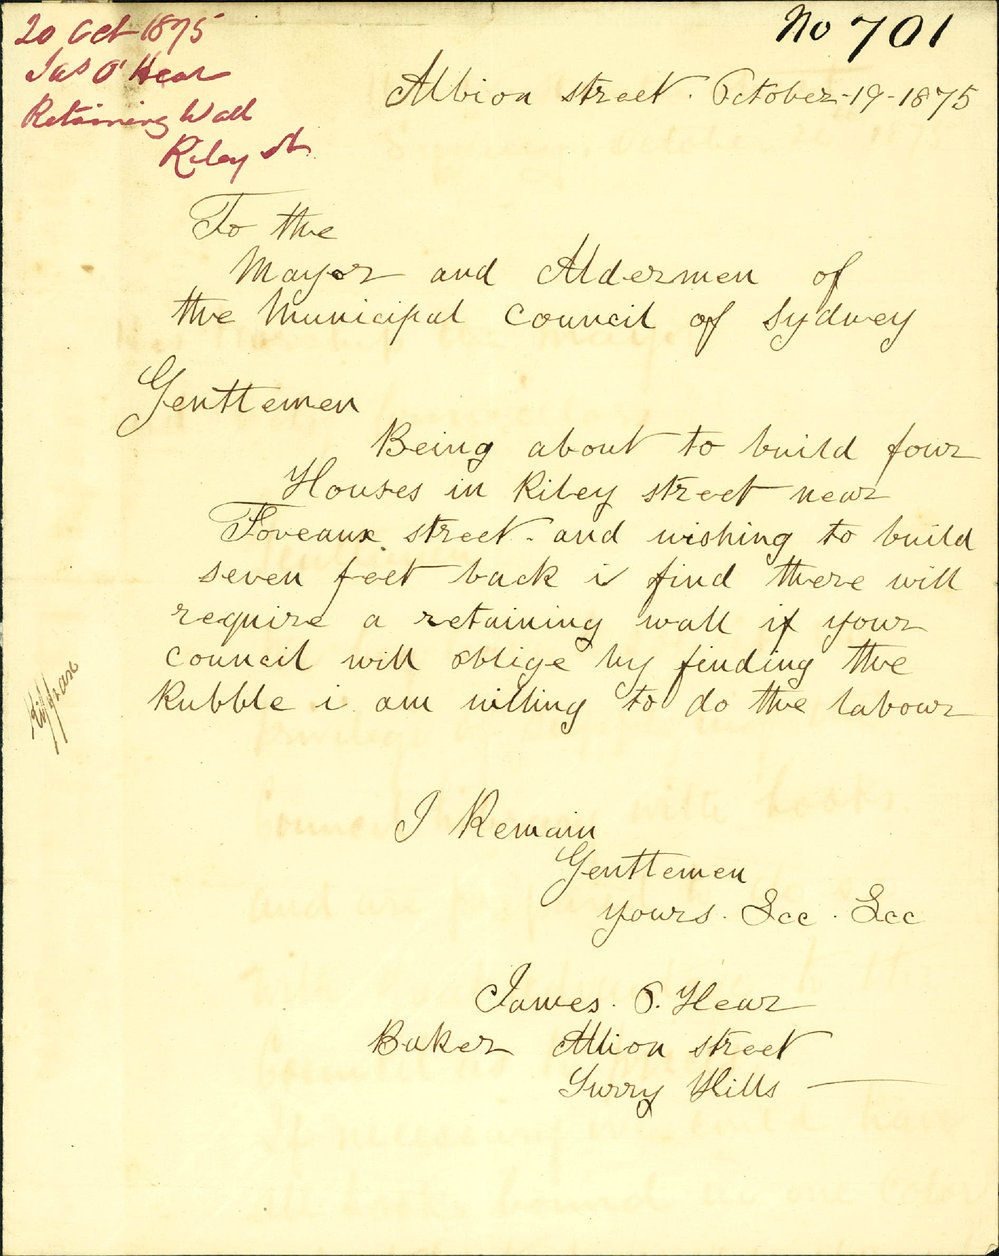 20 Oct 1875
Jas O'Hear
Retaining Wall
Riley St
No 701
Albion street. October-19-1875
To the
Mayor and Aldermen of
the Municipal Council of Sydney
Gentlemen
Being about to build four
Houses in Riley street near
Foveaux street - and wishing to build
seven feet back i find there will
require a retaining wall if your
council will oblige by finding the
Rubble i am willing to do the labour
I Remain
Gentlemen
yours. &cc. &cc
James. O. Hear
Baker Albion street
Surry Hills